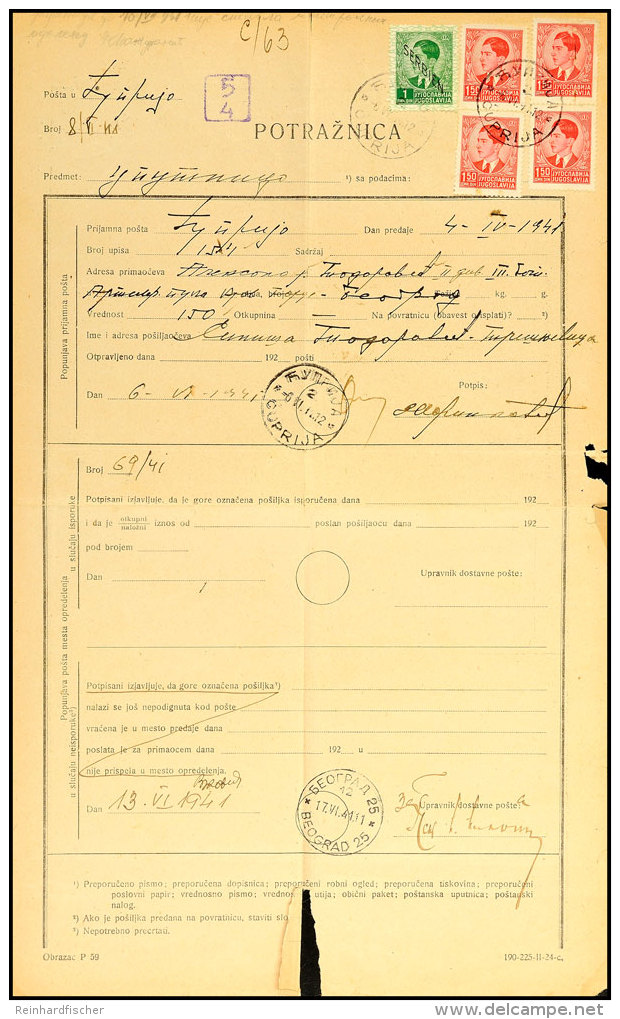 C/63
54
Pošta u Ћуприја
Broj 8/VI 41
POTRAŽNICA
SERBIEN
1 ЈУГОСЛАВИЈА JUGOSLAVIJA
1.50 ЈУГОСЛАВИЈА JUGOSLAVIJA
1.50 ЈУГОСЛАВИЈА JUGOSLAVIJA
1.50 ЈУГОСЛАВИЈА JUGOSLAVIJA
1.50 ЈУГОСЛАВИЈА JUGOSLAVIJA
ЋУПРИЈА 2 ĆUPRIJA
Predmet: упутница ¹) sa podacima:
Popunjava prijamna pošta
Prijamna pošta Ћуприја Dan predaje 4-IV-1941
Broj upisa 154 Sadržaj
Adresa primaočeva
Београд kg. g.
Vrednost 150 Otkupnina — Na povratnicu (obavest o isplati)? ²)
Ime i adresa pošiljaočeva Синиша Тодоровић
Otpravljeno dana 192 pošti
Dan 6-VI-1941 Potpis:
ЋУПРИЈА 2 -6.VI.41.12 ĆUPRIJA
Popunjava pošta mesta opredelenja
u slučaju isporuke
Broj 69/41
Potpisani izjavljuje, da je gore označena pošiljka isporučena dana 192
i da je otkupni/naložni iznos od poslan pošiljaocu dana 192
pod brojem
Dan Upravnik dostavne pošte:
u slučaju neisporuke³)
Potpisani izjavljuje, da gore označena pošiljka³)
nalazi se još nepodignuta kod pošte
vraćena je u mesto predaje dana
poslata je za primaocem dana 192 u
nije prispela u mesto opredelenja.
Dan 13-VI 1941
БЕОГРАД 25 12 17.VI.41.11 BEOGRAD 25
за Upravnik dostavne pošte
¹) Preporučeno pismo; preporučena dopisnica; preporučeni robni ogled; preporučena tiskovina; preporučeni
poslovni papir; vrednosno pismo; vrednos utija; obični paket; poštanska uputnica; poštanski
nalog.
²) Ako je pošiljka predana na povratnicu, staviti slo
³) Nepotrebno precrtati.
Obrazac P 59 190-225-II-24-c.
Reinhardfischer
delcampe.net